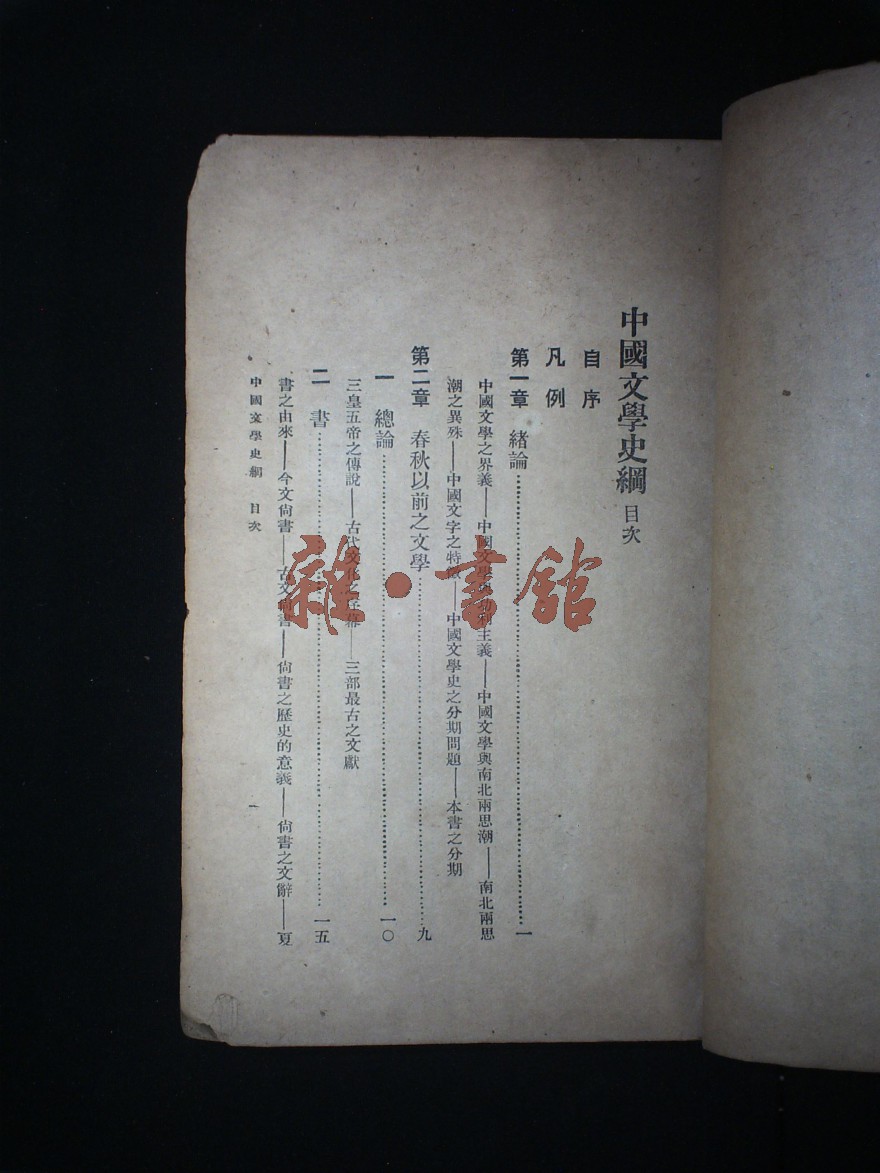 中國文學史綱 目次
自序
凡例
第一章 緒論……一
中國文學之界義——中國文學與功利主義——中國文學與南北兩思潮——南北兩思
潮之異殊——中國文字之特徵——中國文學史之分期問題——本書之分期
第二章 春秋以前之文學……九
一 總論……一〇
三皇五帝之傳說——古代文化之序幕——三部最古之文獻
二 書……一五
書之由來——今文尙書——古文尙書——尙書之歷史的意義——尙書之文辭——夏
中國文學史綱 目次 一
雜·書館